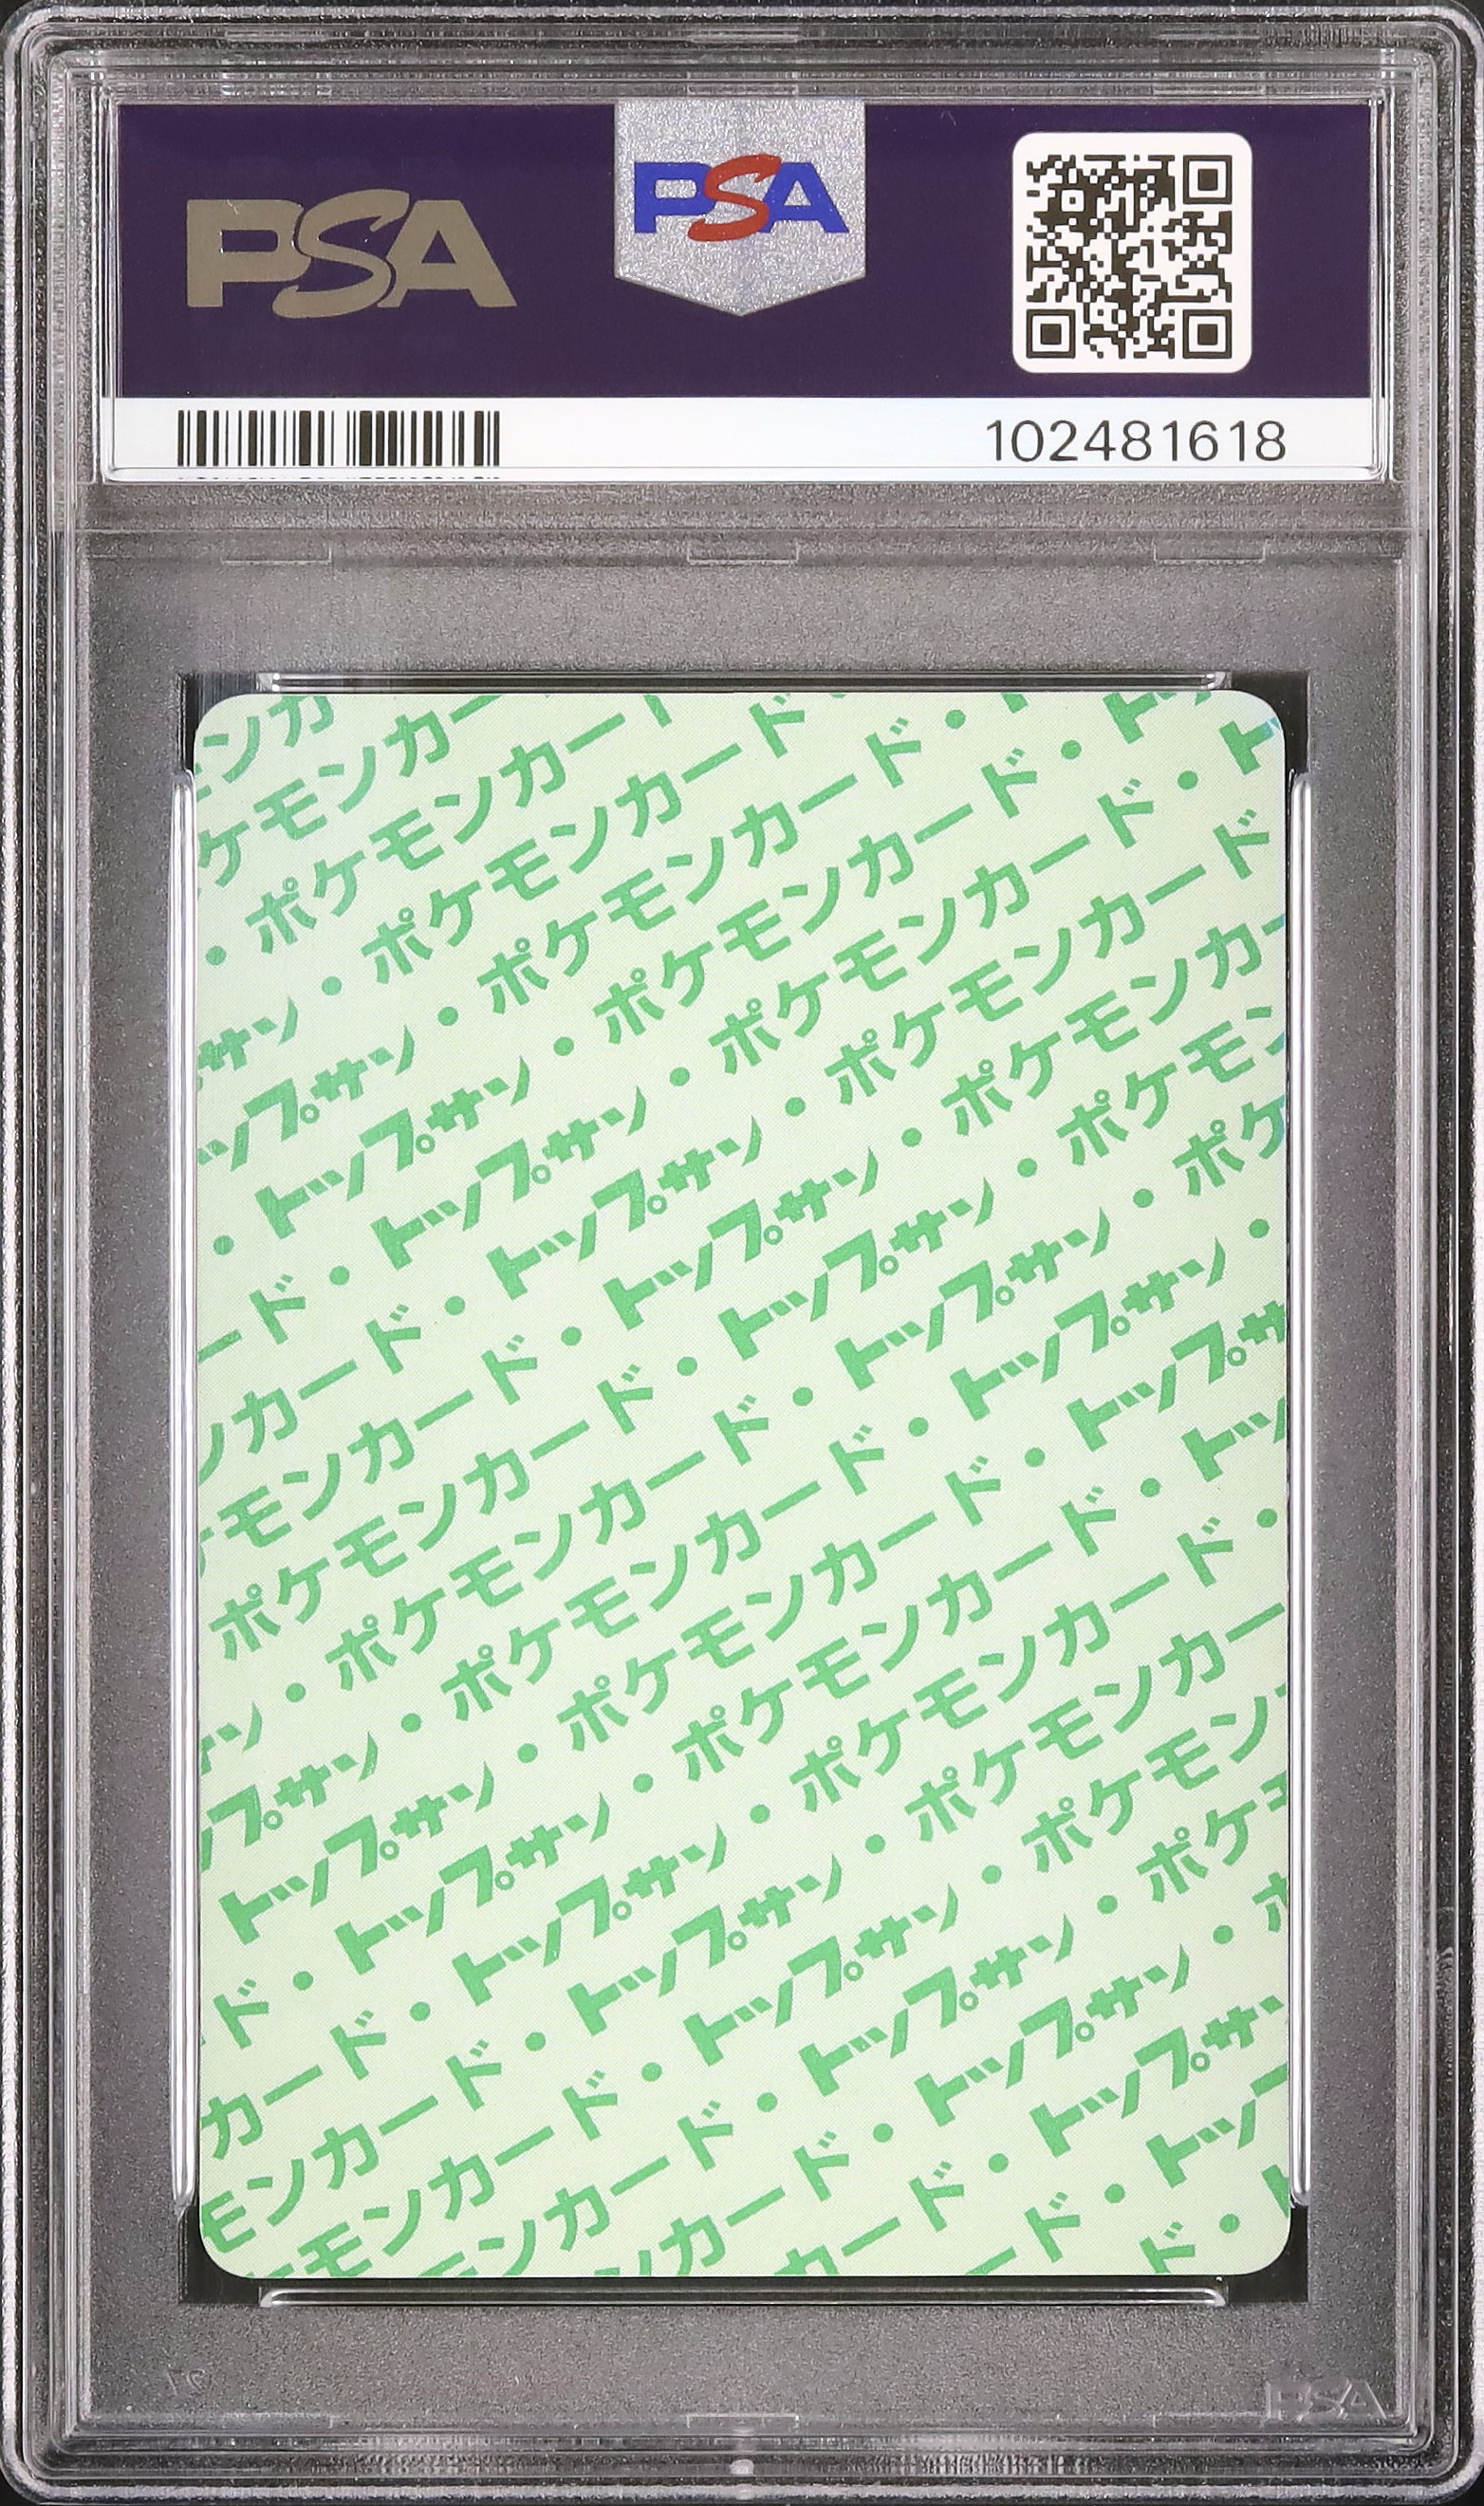 PSA
PSA
102481618
ンカ
ケモンカー
・ポケモンカー
サン・ポケモンカード
ップサン・ポケモンカード・
・トップサン・ポケモンカード・ト
ード・トップサン・ポケモンカード・ト
ンカード・トップサン・ポケモンカード
モンカード・トップサン・ポケモンカー
ポケモンカード・トップサン・ポケモン
サン・ポケモンカード・トップサン・ポケ
プサン・ポケモンカード・トップサン・
トップサン・ポケモンカード・トップサ
ド・トップサン・ポケモンカード・トッ
カード・トップサン・ポケモンカード・
モンカード・トップサン・ポケモンカー
モンカード・トップサン・ポケモン
ンカード・トップサン・ポケ
カード・トップサン・ポ
ード・トップサ
ド・トップ
ド・
PSA